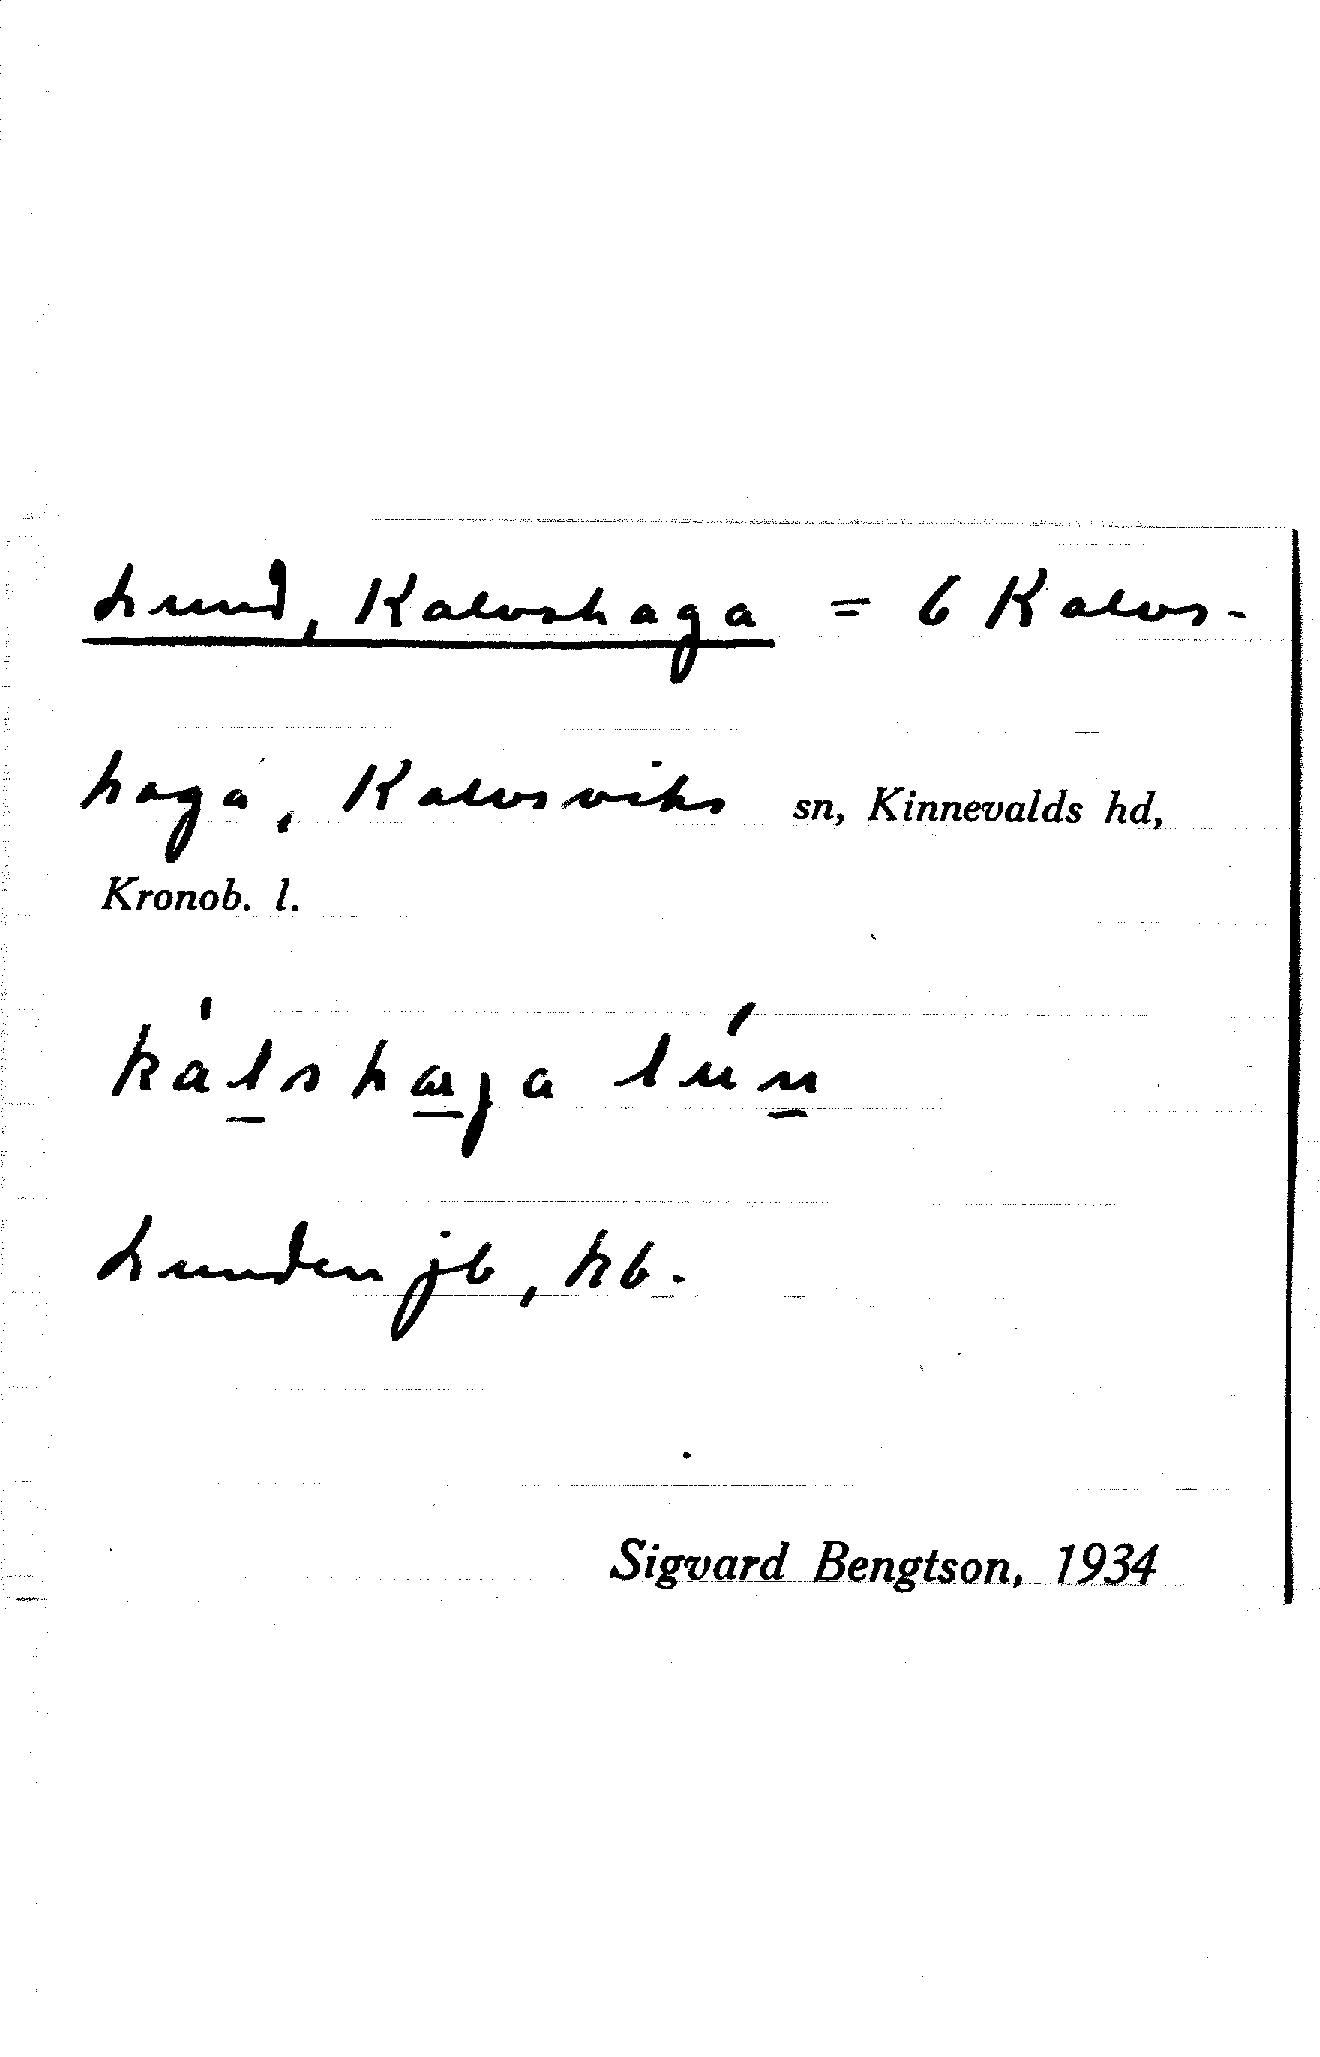 Lund, Kalvshaga = 6 Kalvs-
haga, Kalvsviks sn, Kinnevalds hd,
Kronob. l.
kàlshaga lún
Lunden jb, kb.
Sigvard Bengtson, 1934